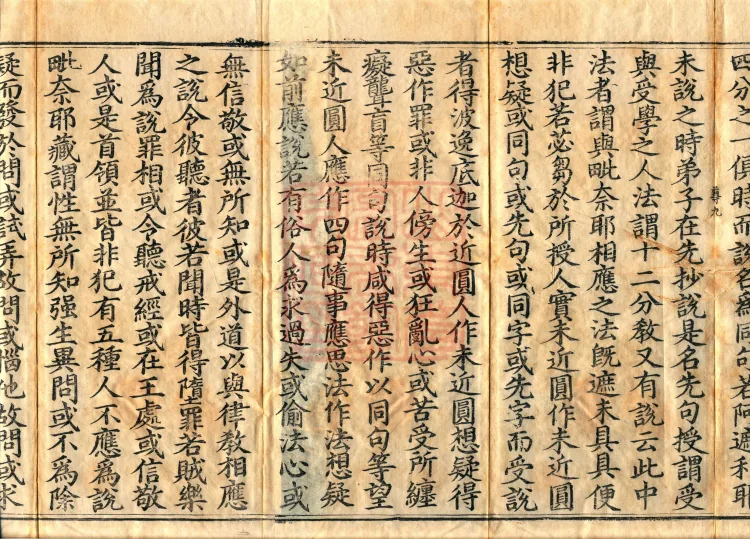 四分之一俱時而說名爲同句若阿遮利耶
尊九
未說之時弟子在先抄說是名先句授謂受
與受學之人法謂十二分教又有說云此中
法者謂與毗奈耶相應之法旣遮未具具便
非犯若苾芻於所授人實未近圓作未近圓
想疑或同句或先句或同字或先字而受說
者得波逸底迦於近圓人作未近圓想疑得
惡作罪或非人傍生或狂亂心或苦受所纏
癡聾盲等同句說時咸得惡作以同句等望
未近圓人應作四句隨事應思法作法想疑
如前應說若有俗人爲求過失或偷法心或
無信敬或無所知或是外道以與律教相應
之說令彼聽者彼若聞時皆得墮罪若賊樂
聞爲說罪相或令聽戒經或在王處或信敬
人或是首領並皆非犯有五種人不應爲說
毗奈耶藏謂性無所知强生異問或不爲除
疑而發於問或試弄故問或惱他故問或求